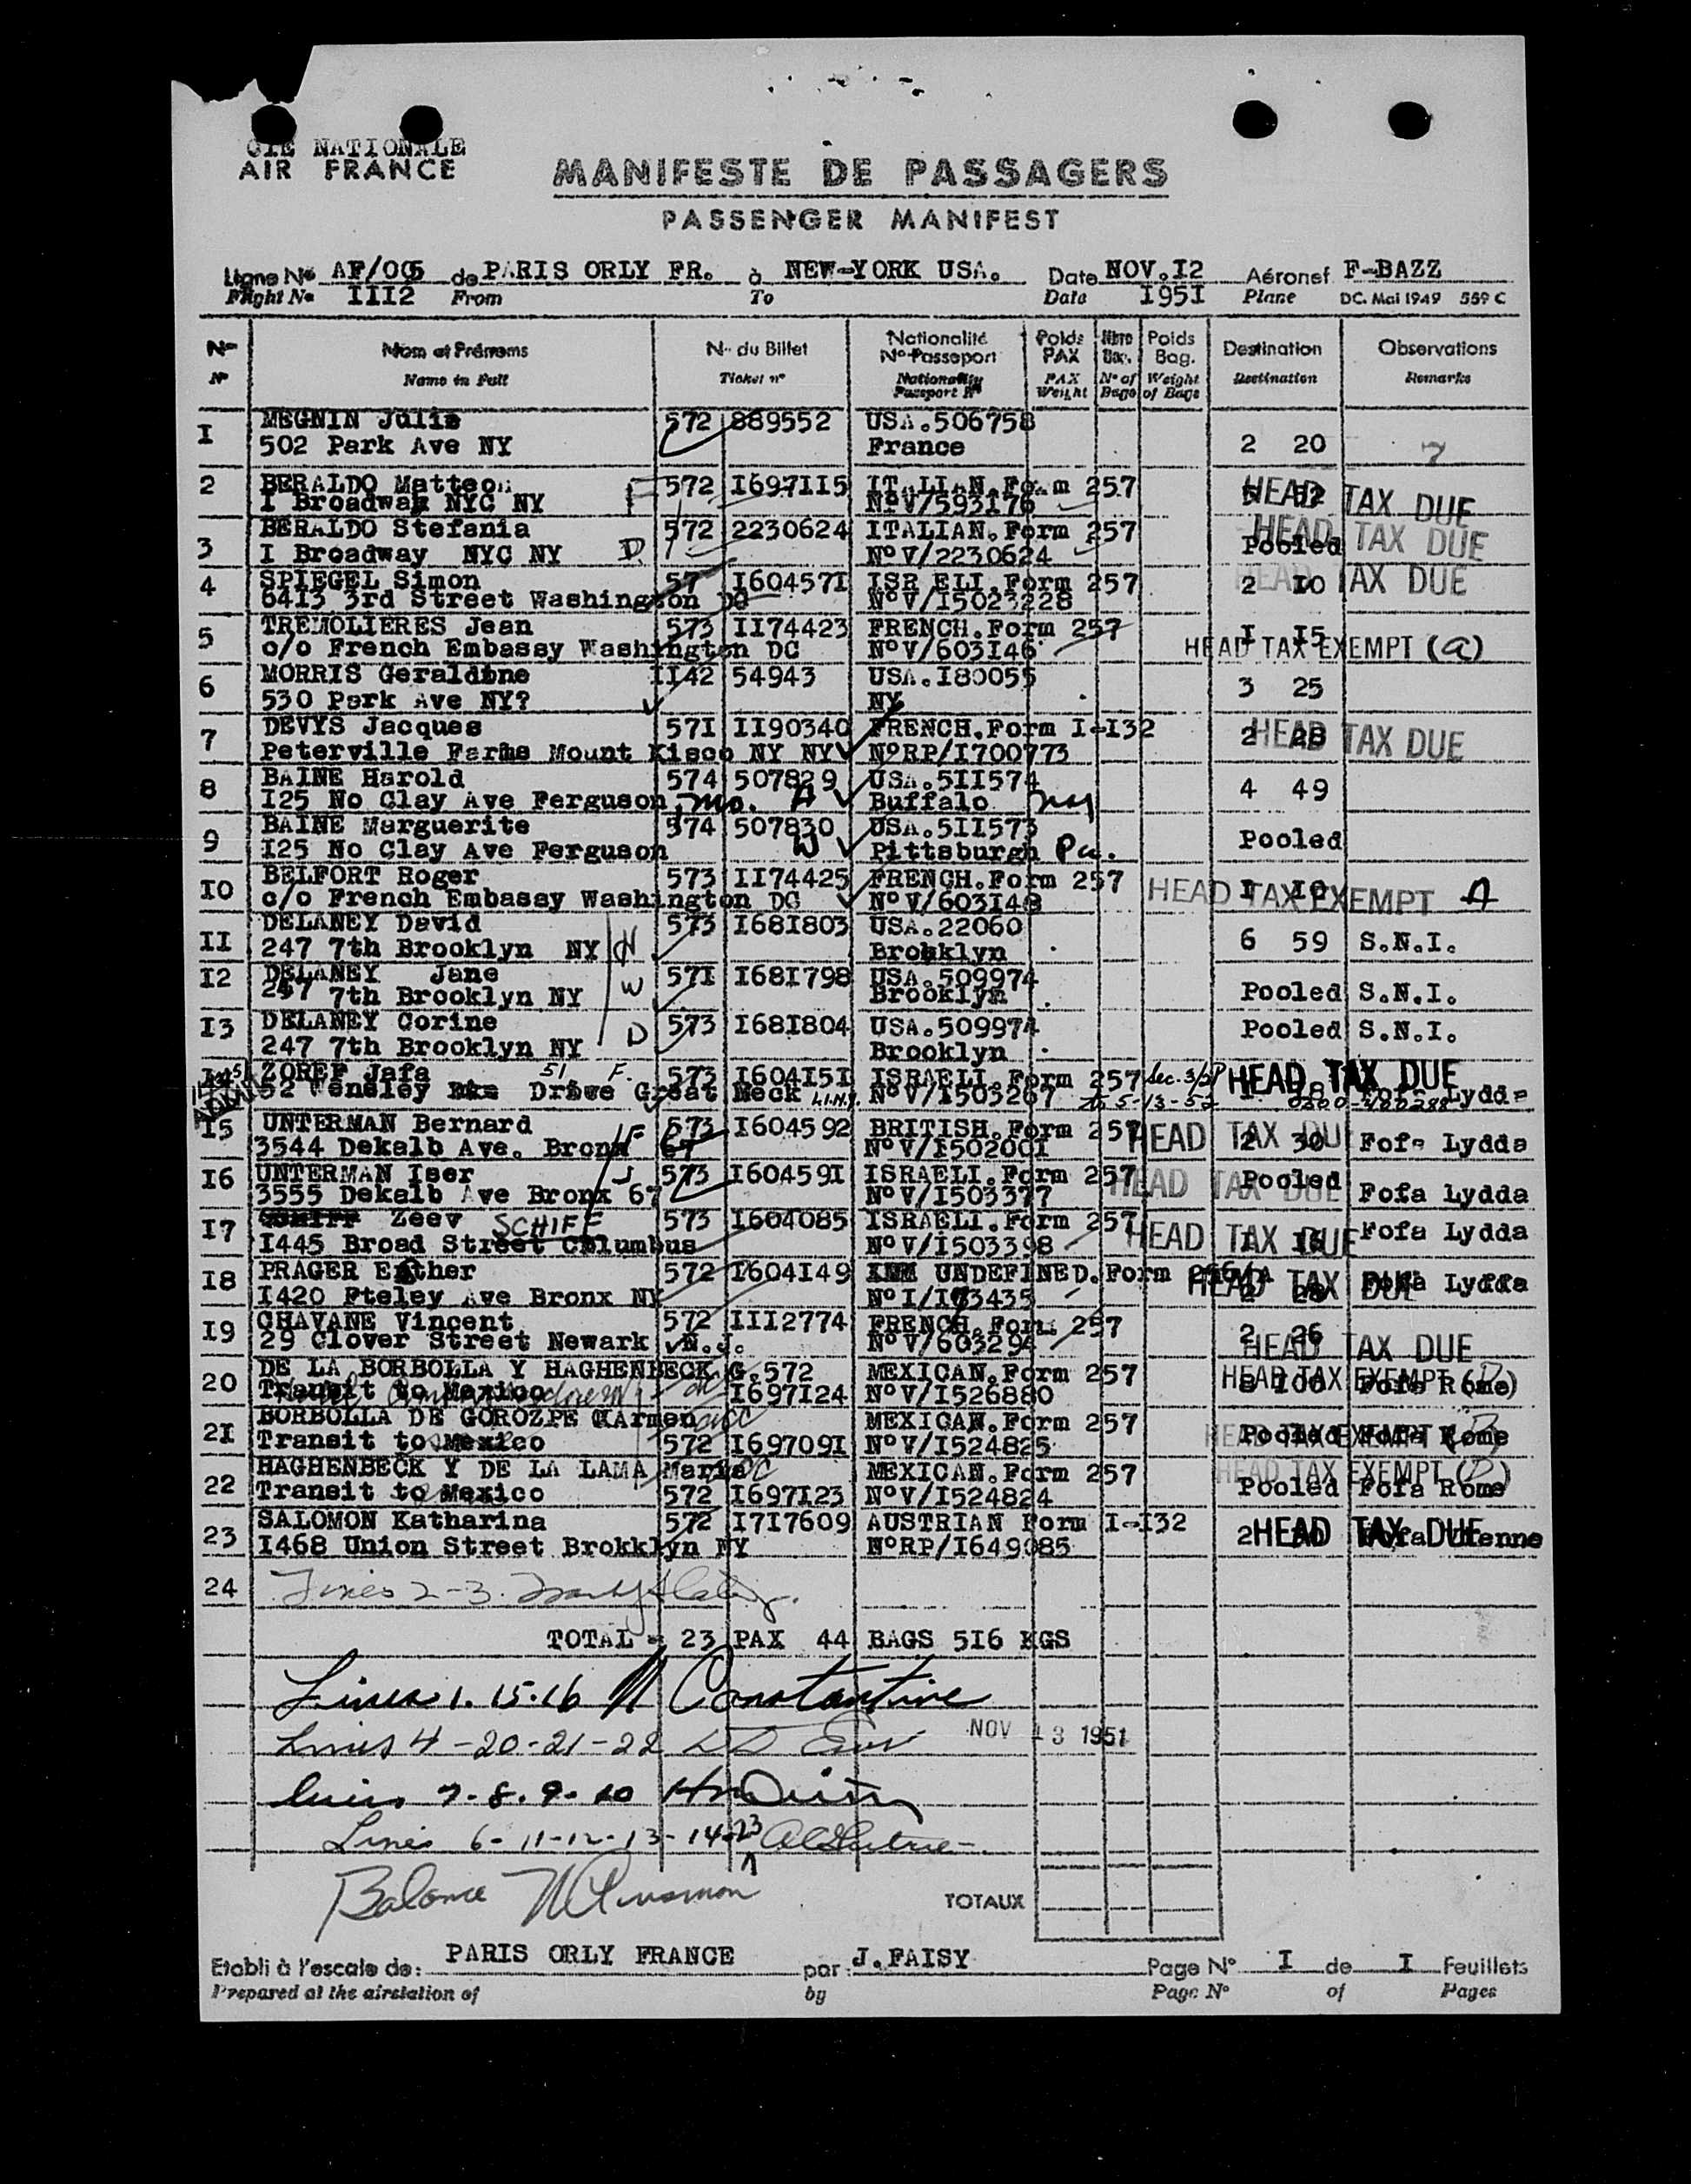 CIE NATIONALE
AIR FRANCE
MANIFESTE DE PASSAGERS
PASSENGER MANIFEST
Ligne No AF/005 de PARIS ORLY FR. à NEW-YORK USA. Date NOV.I2 Aéronef F-BAZZ
Flight No III2 From To Date I95I Plane DC. Mai 1949 559 C
No Nom et Prénoms No du Billet Nationalité No Passeport Poids PAX Nbre Bag. Poids Bag. Destination Observations
No Name in Full Ticket no Nationality Passport No PAX Weight No of Bags Weight of Bags Destination Remarks
I MEGNIN Julia 572 889552 USA.506758
502 Park Ave NY France 2 20
2 BERALDO Matteo 572 I697II5 ITALIAN.Form 257 HEAD TAX DUE
I Broadway NYC NY F NoV/593I76
3 BERALDO Stefania 572 2230624 ITALIAN.Form 257 Pooled HEAD TAX DUE
I Broadway NYC NY D NoV/2230624
4 SPIEGEL Simon 57 I60457I ISR ELI.Form 257 2 I0 HEAD TAX DUE
6413 3rd Street Washington DC NoV/I5023228
5 TREMOLIERES Jean 573 II74423 FRENCH.Form 257 I I5
c/o French Embassy Washington DC NoV/603I46 HEAD TAX EXEMPT (a)
6 MORRIS Geraldine II42 54943 USA.I80055 3 25
530 Park Ave NY? NY
7 DEVYS Jacques 57I II90340 FRENCH.Form I-I32 2 28 HEAD TAX DUE
Peterville Farms Mount Kisco NY NY NoRP/I700773
8 BAINE Harold 574 507829 USA.5II574 4 49
I25 No Clay Ave Ferguson, Mo. H Buffalo NY
9 BAINE Marguerite 574 507830 USA.5II573 Pooled
I25 No Clay Ave Ferguson W Pittsburgh Pa.
I0 BELFORT Roger 573 II74425 FRENCH.Form 257 I I0 HEAD TAX EXEMPT A
c/o French Embassy Washington DC NoV/603I48
II DELANEY David 573 I68I803 USA.22060 6 59 S.N.I.
247 7th Brooklyn NY H Brooklyn
I2 DELANEY Jane 57I I68I798 USA.509974 Pooled S.N.I.
247 7th Brooklyn NY W Brooklyn
I3 DELANEY Corine 573 I68I804 USA.509974 Pooled S.N.I.
247 7th Brooklyn NY D Brooklyn
I4 ZOREF Jafa 51 F. 573 I604I5I ISRAELI.Form 257 Sec. 3/2P HEAD TAX DUE
52 Wensley Drive Great Neck L.I.N.Y. NoV/I503267 to 5-13-52 0300-400288 Lydda
I5 UNTERMAN Bernard 573 I604592 BRITISH.Form 257 HEAD TAX DUE 2 30 Fofa Lydda
3544 Dekalb Ave. Bronx 67 F NoV/I50200I
I6 UNTERMAN Iser S 573 I60459I ISRAELI.Form 257 Pooled HEAD TAX DUE Fofa Lydda
3555 Dekalb Ave Bronx 67 NoV/I503377
I7 Zeev SCHIFF 573 I604085 ISRAELI.Form 257 I I6 HEAD TAX DUE Fofa Lydda
I445 Broad Street Columbus NoV/I503398
I8 PRAGER Esther 572 I604I49 UNDEFINED.Form HEAD TAX DUE Lydda
I420 Fteley Ave Bronx NY
I9 CHAVANE Vincent 572 III2774 FRENCH.Form 257 2 26 HEAD TAX DUE
29 Clover Street Newark N.J. NoV/603294
20 DE LA BORBOLLA Y HAGHENBECK G. 572 MEXICAN.Form 257 8 I00 HEAD TAX EXEMPT (D) Fofa Rome
Transit to Mexico I697I24 NoV/I526880
2I BORBOLLA DE GOROZPE CArmen MEXICAN.Form 257 Pooled HEAD TAX EXEMPT (D) Fofa Rome
Transit to Mexico 572 I69709I NoV/I524825
22 HAGHENBECK Y DE LA LAMA Maria MEXICAN.Form 257 Pooled HEAD TAX EXEMPT (D) Fofa Rome
Transit to Mexico 572 I697I23 NoV/I524824
23 SALOMON Katharina 572 I7I7609 AUSTRIAN Form I-I32 2 HEAD TAX DUE
I468 Union Street Brokklyn NY NoRP/I649085
24 Lines 2-3
TOTAL = 23 PAX 44 BAGS 5I6 KGS
Lines 1. 15.16 N Constantine
Lines 4-20-21-22
NOV 13 1951
Lines 7-8.9-10
Lines 6-11-12-13-14-23
Balance
TOTAUX
Etabli à l'escale de: PARIS ORLY FRANCE par: J.FAISY Page No I de I Feuillets
Prepared at the airstation of by Page No of Pages